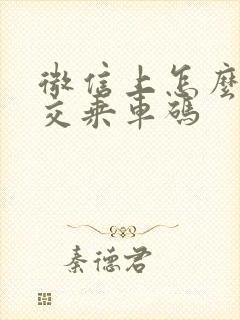 微信上怎麽
交乘車碼
秦德君